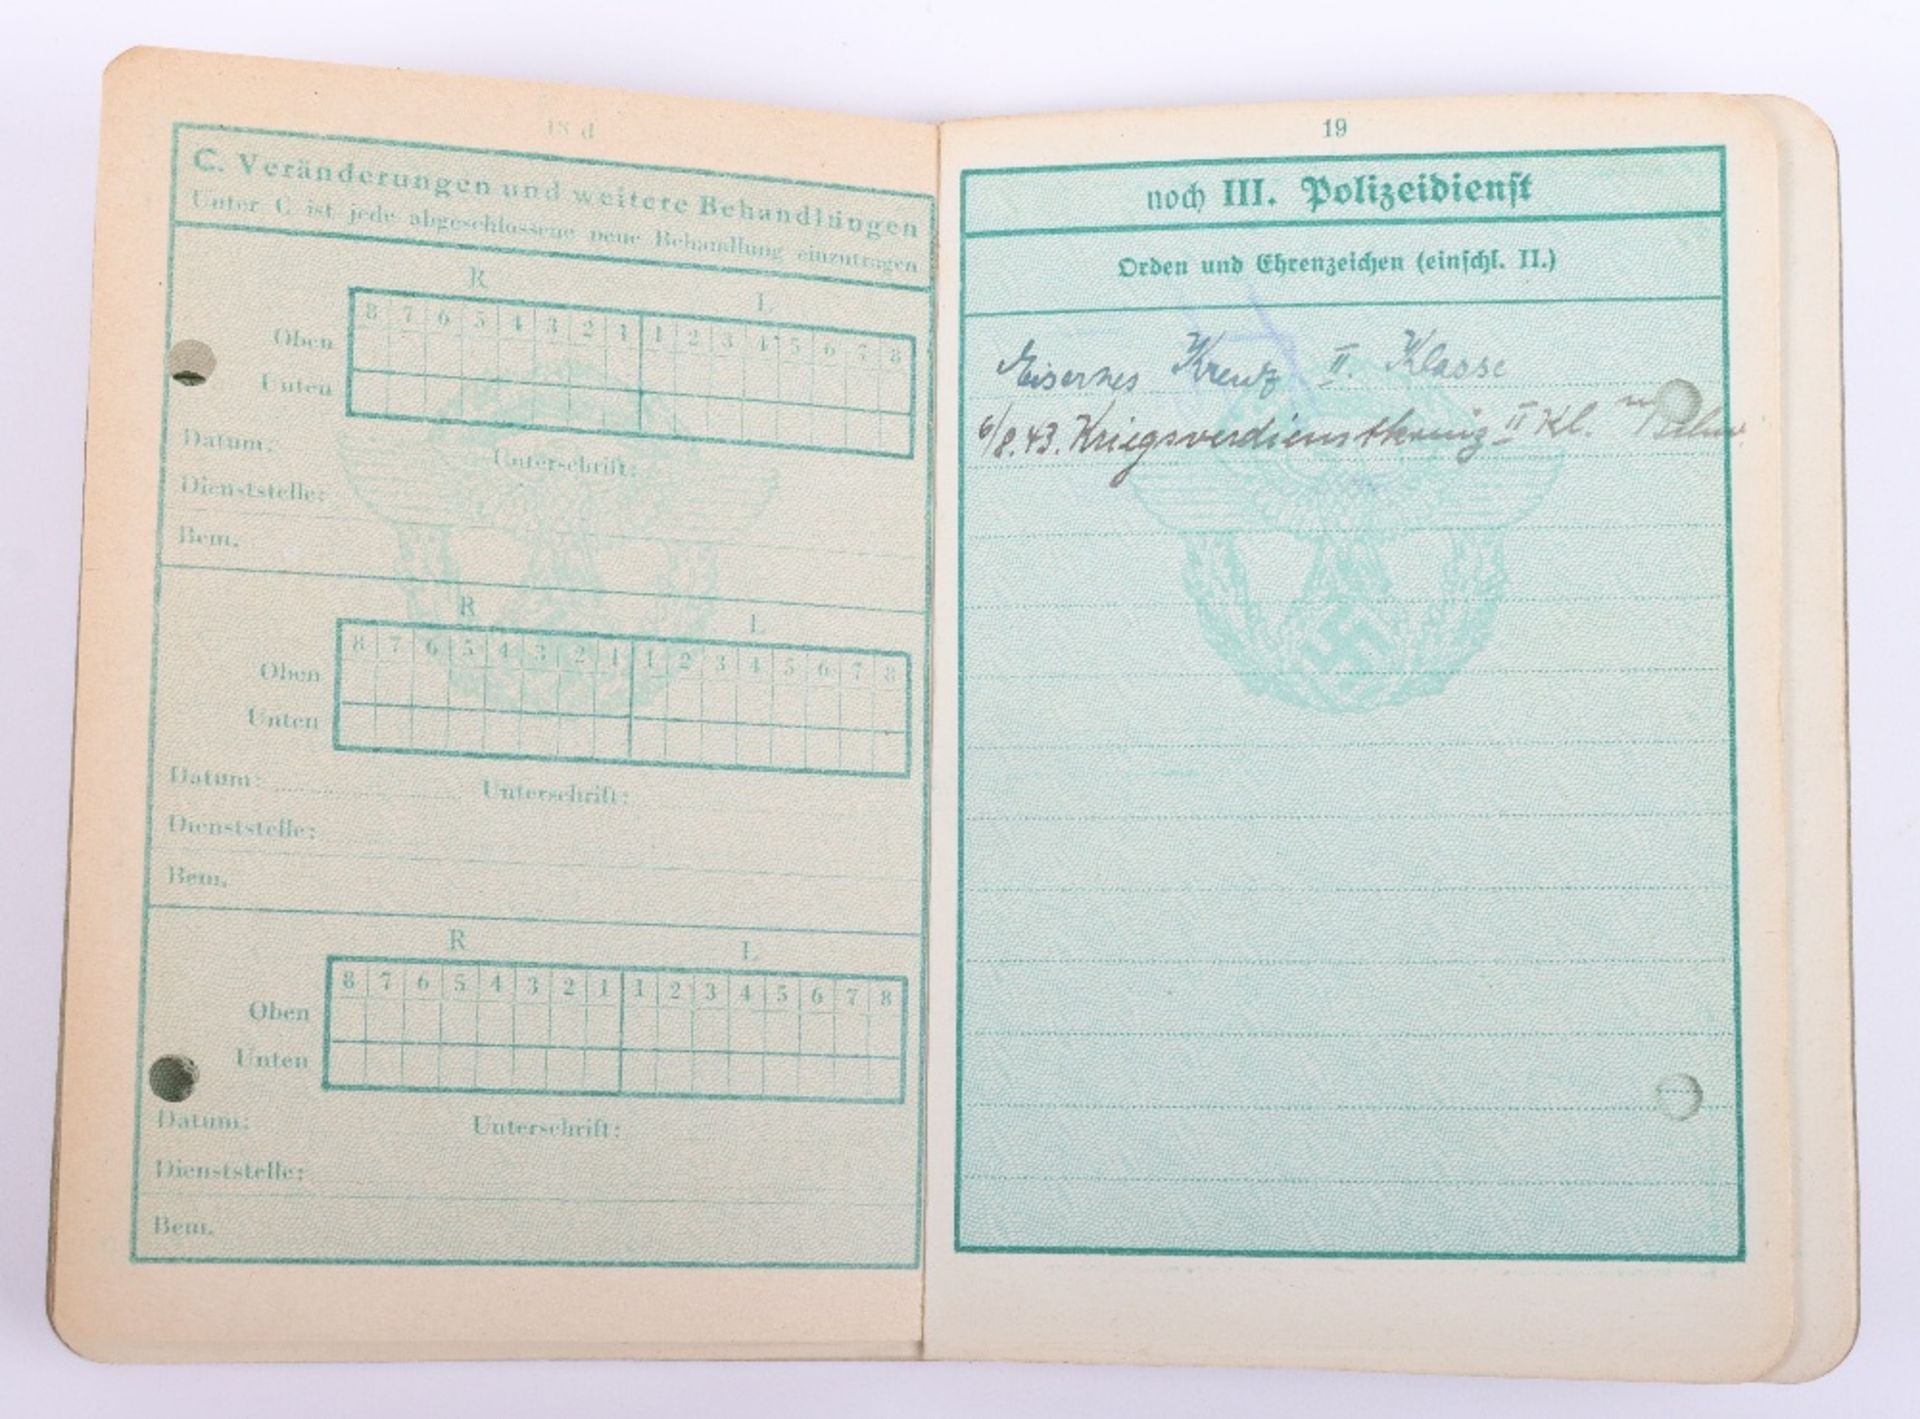 18 d
C. Veränderungen und weitere Behandlungen
Unter C ist jede abgeschlossene neue Behandlung einzutragen
R L
8 7 6 5 4 3 2 1 1 2 3 4 5 6 7 8
Oben
Unten
Datum: Unterschrift:
Dienststelle:
Bem.
R L
8 7 6 5 4 3 2 1 1 2 3 4 5 6 7 8
Oben
Unten
Datum: Unterschrift:
Dienststelle:
Bem.
R L
8 7 6 5 4 3 2 1 1 2 3 4 5 6 7 8
Oben
Unten
Datum: Unterschrift:
Dienststelle:
Bem.
19
noch III. Polizeidienst
Orden und Ehrenzeichen (einschl. II.)
Eisernes Kreuz II. Klasse
6/8.43. Kriegsverdienstkreuz II Kl.